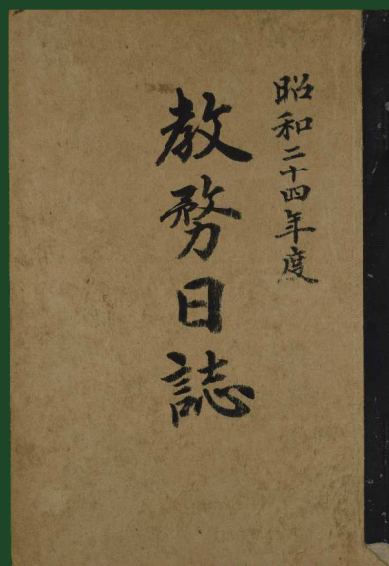 昭和二十四年度
教務日誌